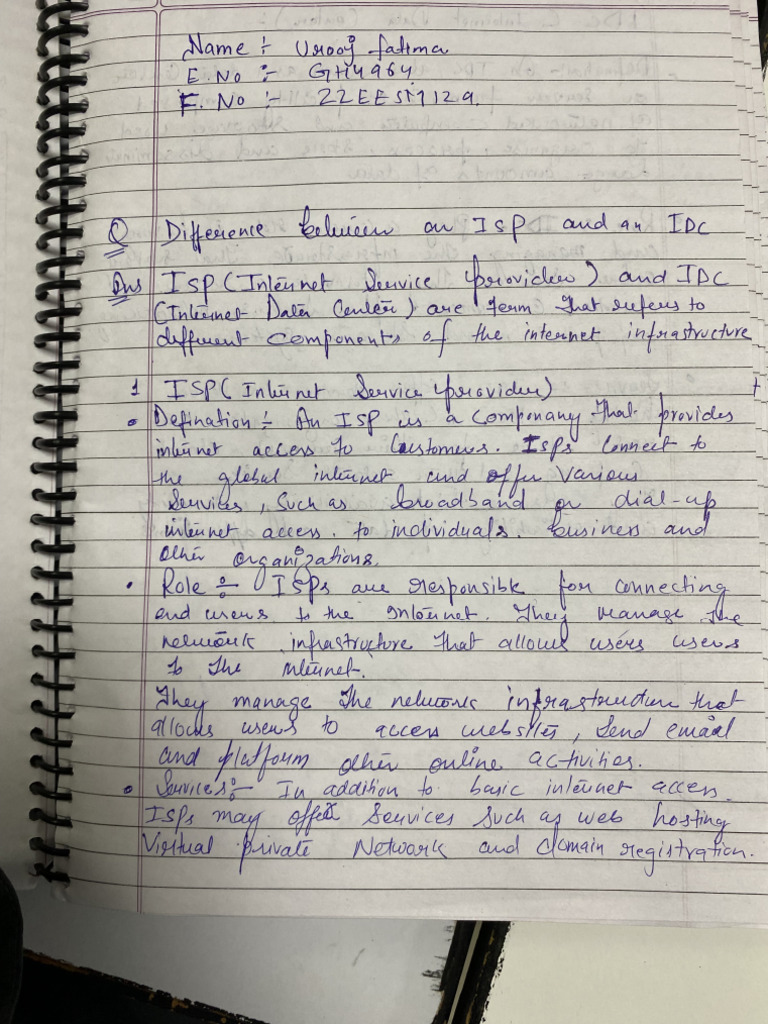 Name :- Urooj fatima
E. No :- GH4964
F. No :- 22EESI7129.
Q Difference between an ISP and an IDC
Ans ISP (Internet Service provider) and IDC
(Internet Data Center) are term that refers to
different components of the internet infrastructure
1 ISP (Internet Service provider)
• Defination :- An ISP is a componany that provides
internet access to Customers. ISPs connect to
the global internet and offer Various
Services, Such as broadband or dial-up
internet access. to individuals. business and
other organizations.
• Role :- ISPs are responsible for connecting
end users to the Internet. They manage the
network infrastructure that allows users users
to the internet.
They manage the network infrastructure that
allows users to access websites, Send email
and platform other online activities.
• Services :- In addition to basic internet access.
ISPs may offer Services Such as web hosting
Virtual private Network and domain registration.